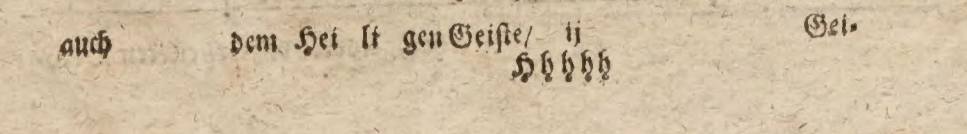 auch dem Hei li gen Geiste/ ij Gei-
Hhhhh